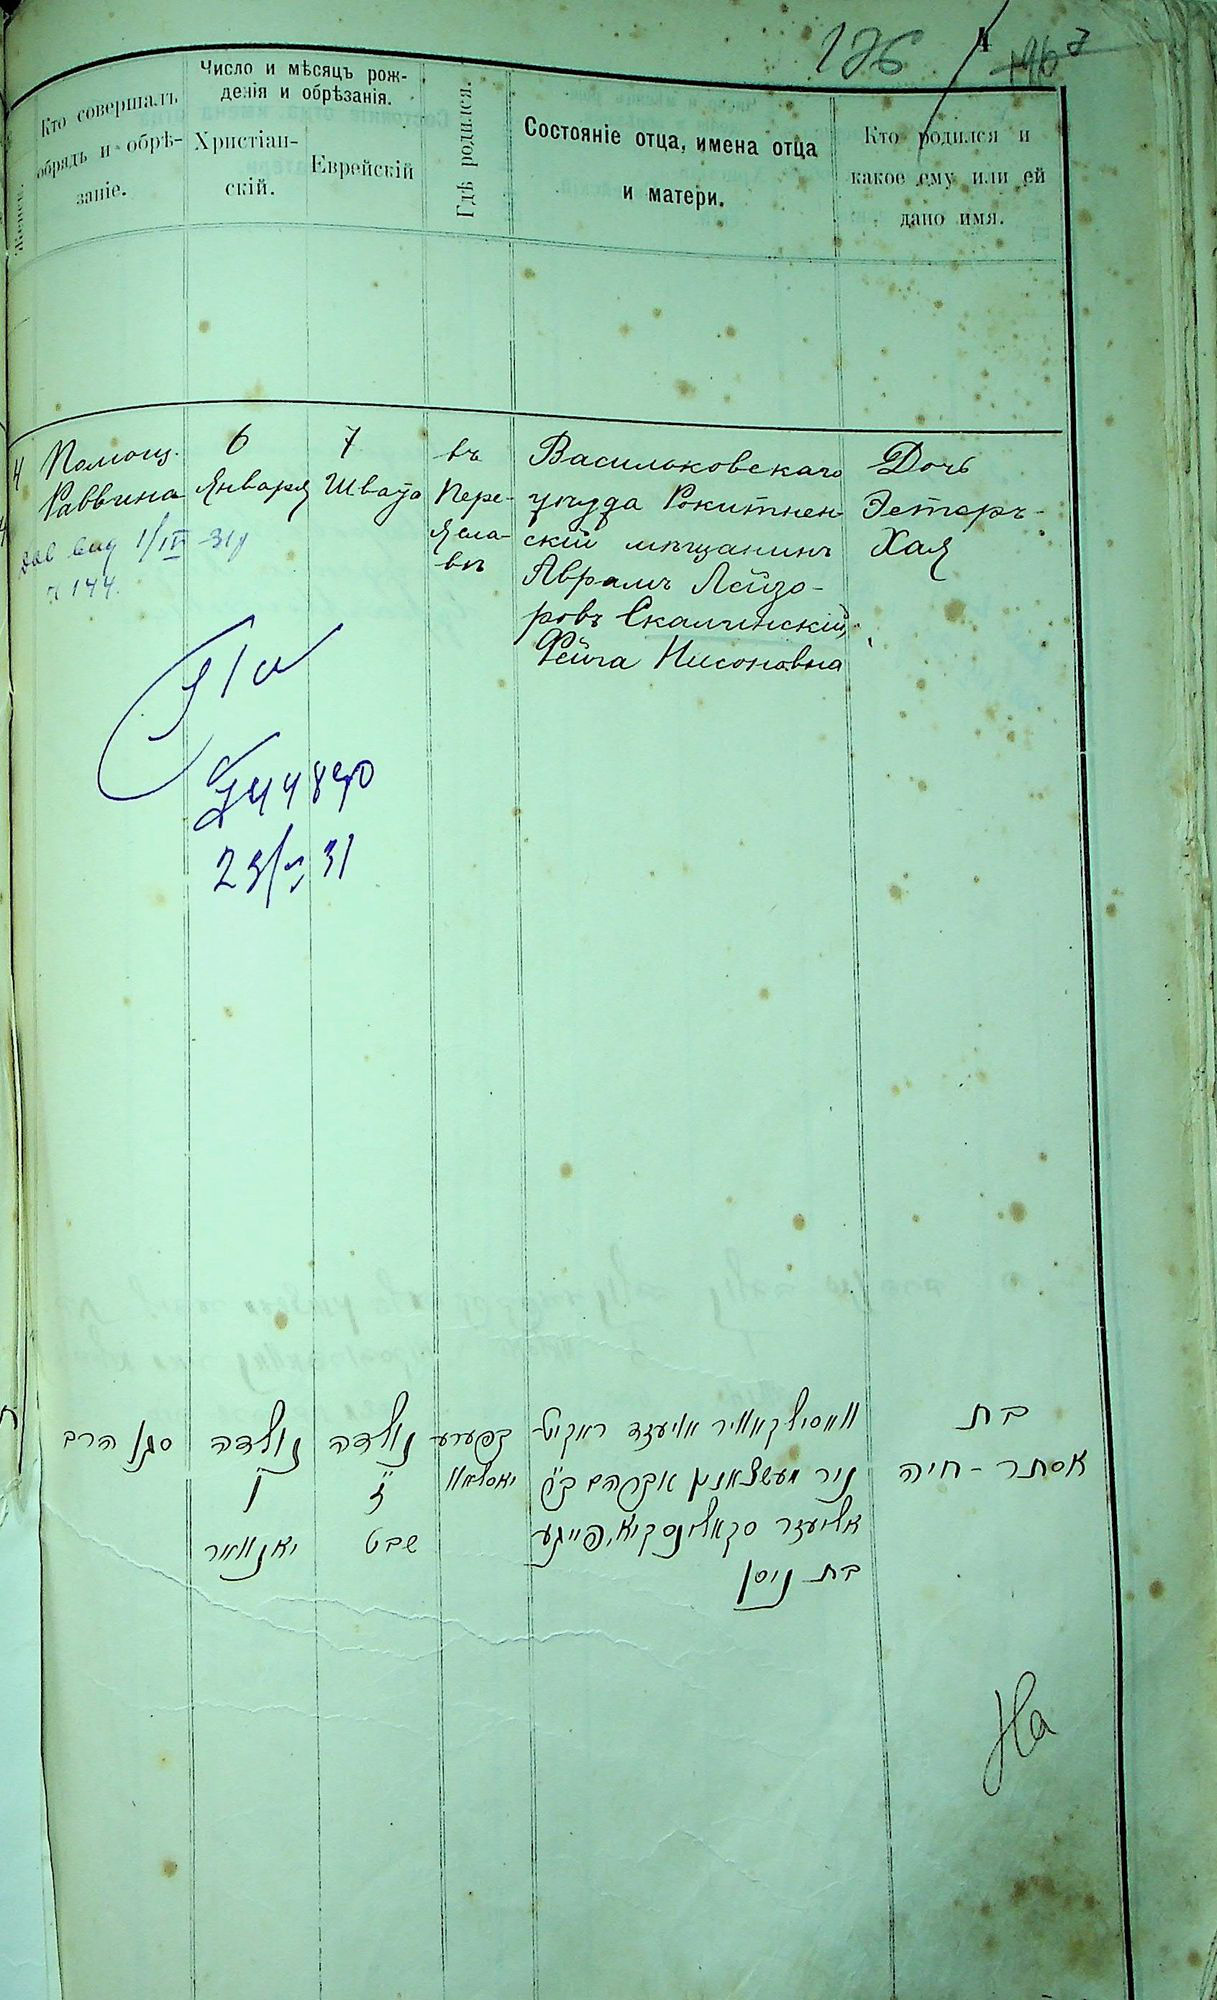 126
4
Женск.
Кто совершалъ
обрядъ и обрѣ-
заніе.
Число и мѣсяцъ рож-
денія и обрѣзанія.
Христіан-
скій.
Еврейскій
Гдѣ родился.
Состояніе отца, имена отца
и матери.
Кто родился и
какое ему или ей
дано имя.
4
Помощ.
Раввина
6
Января
7
Швата
въ
Пере-
ясла-
вѣ
Васильковскаго
уѣзда Рокитнен-
скій мѣщанинъ
Аврамъ Лейзо-
ровъ Скалинскій,
Фейга Нисоновна
Дочь
Эстеръ-
Хая
1/IV 31
144.
44890
31
סגן הרב
נולדה
ו
יאנוואר
נולדה
ז
שבט
בפערע
יאסלאוו
וואסילקאוויר אויעזד ראקיט
ניר מעשצאנין אברהם ב״ר
אליעזר סקאלינסקיא, פייגע
בת ניסן
בת
אסתר - חיה
На